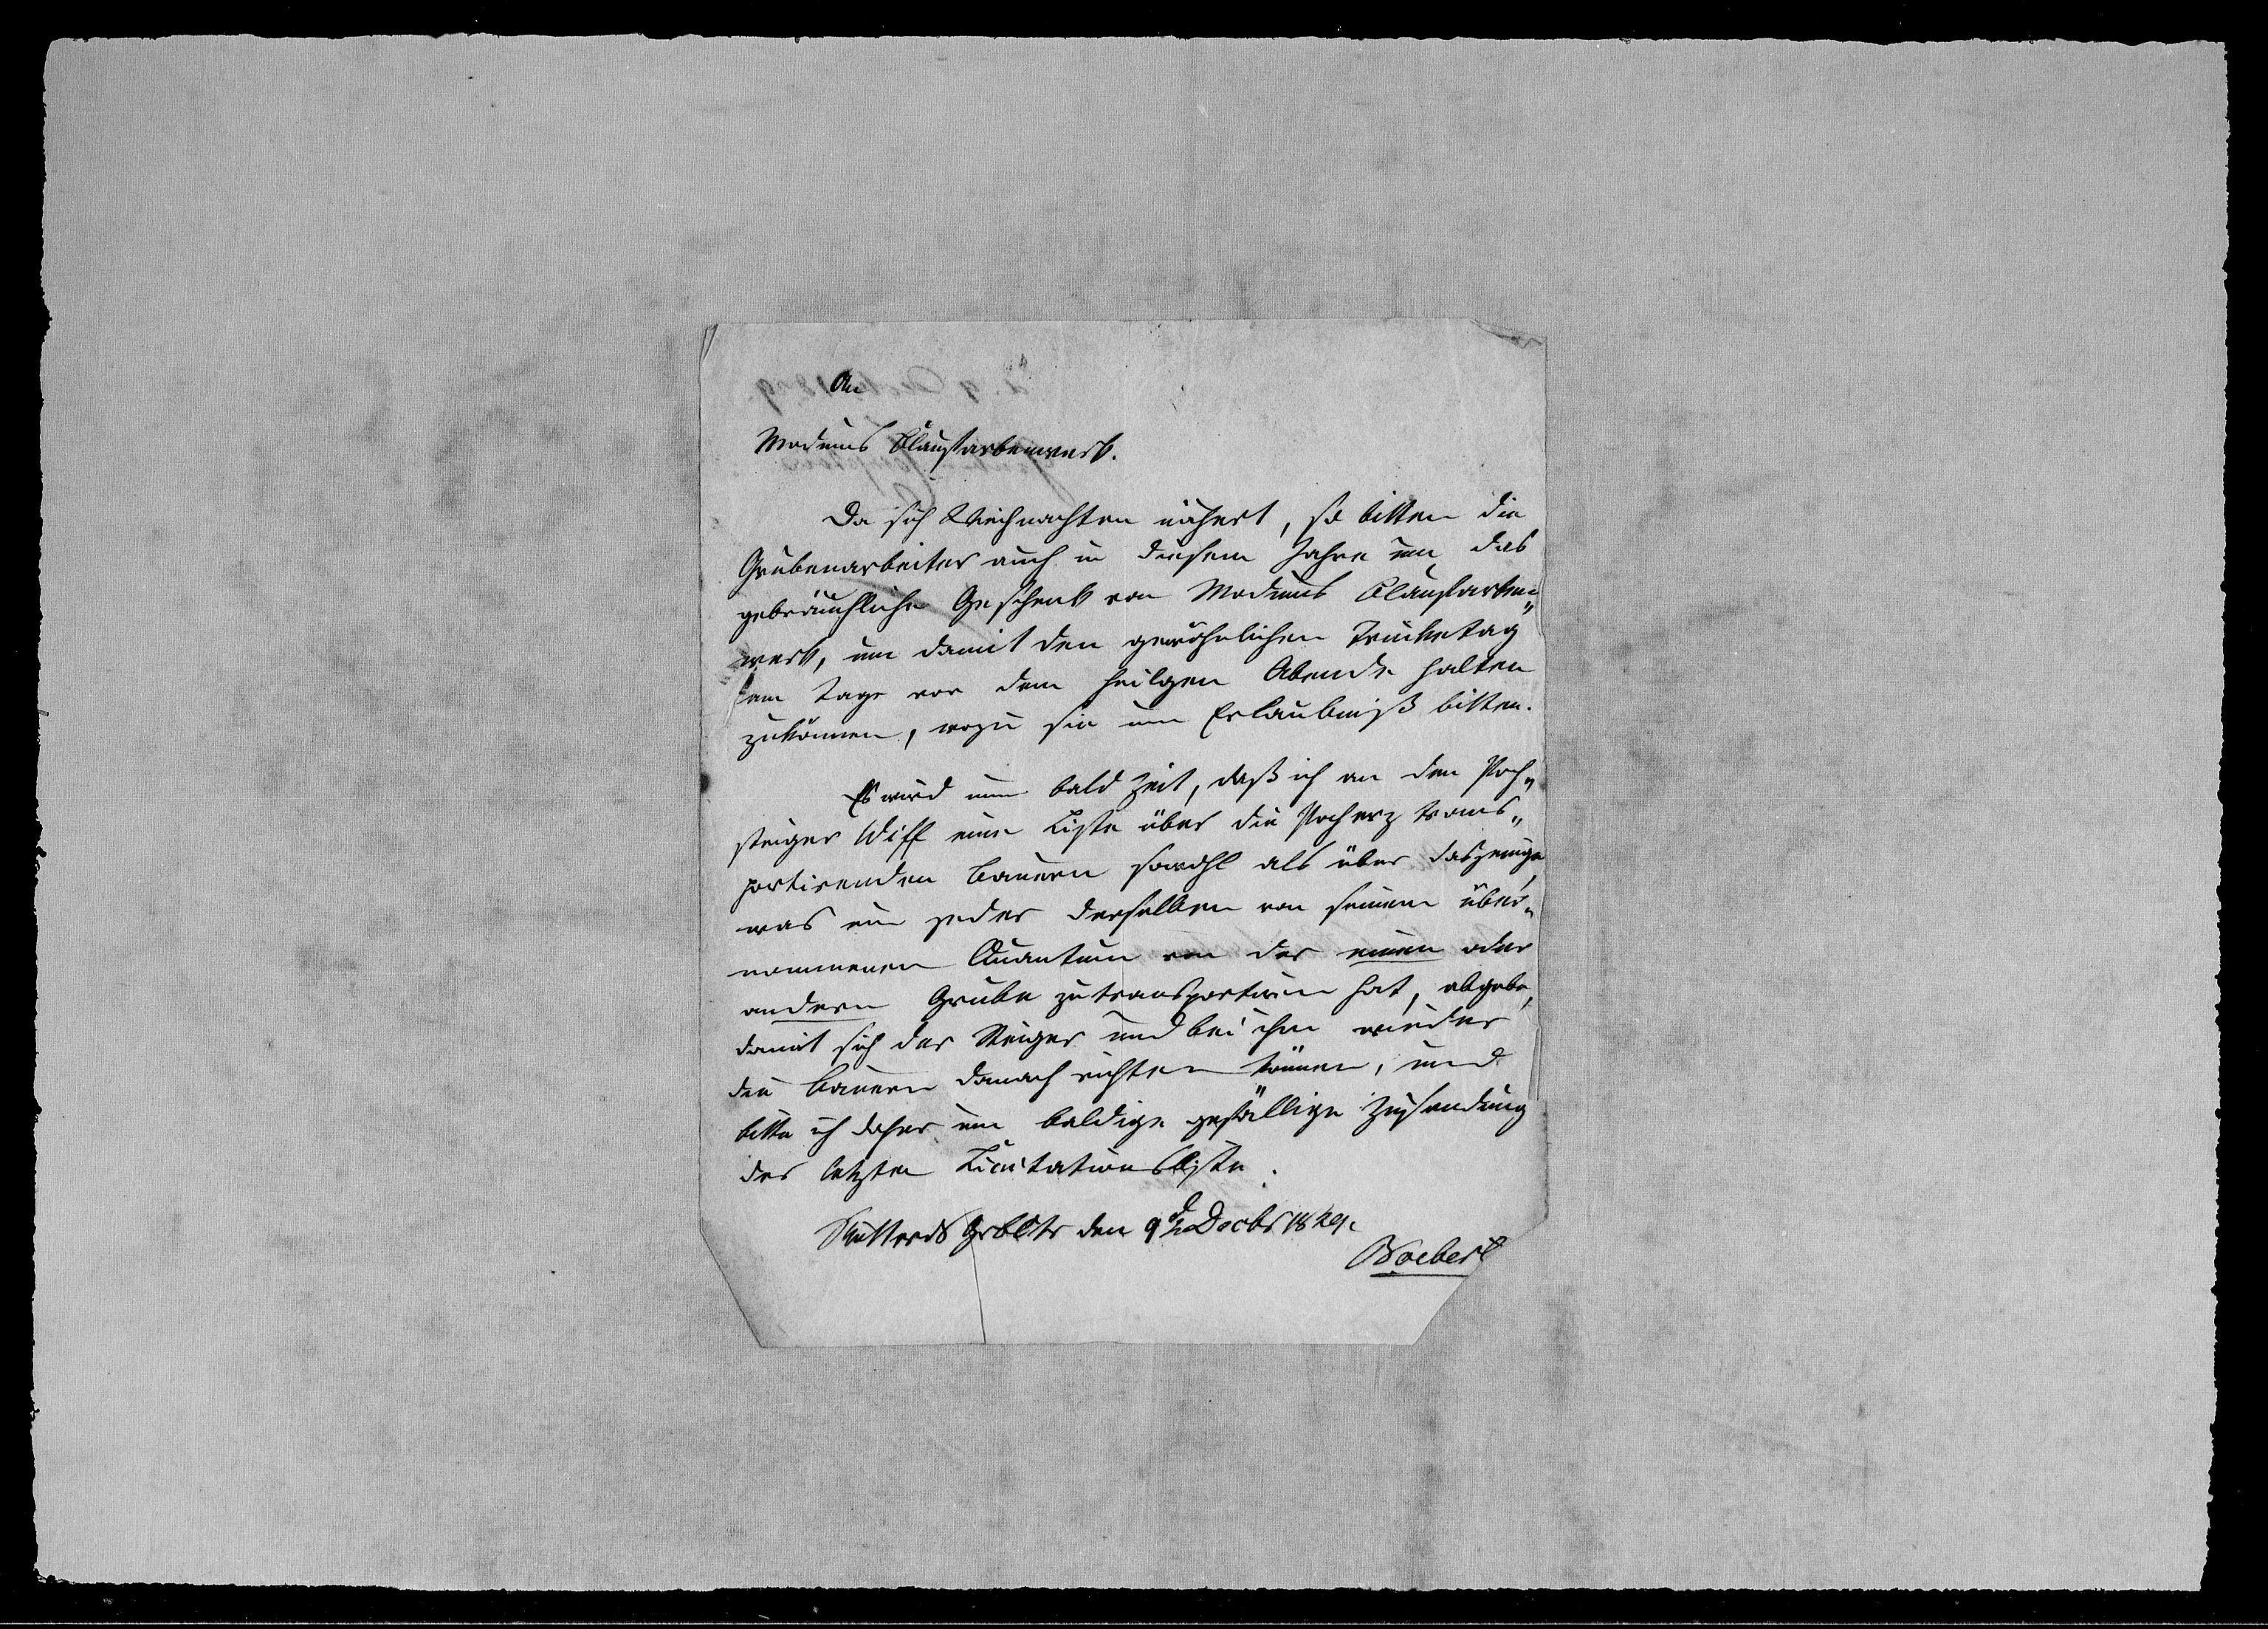 An
Modums Blaufarbenwerk.
Da sich Weihnachten nähert, so bitten die
Grubenarbeiter auch in diesem Jahre um das
gebräuchliche Geschenk von Modums Blaufarben„
werk, um damit den gewöhnlichen Trinketag
am Tage vor dem heilgen Abende halten
zukönnen, wozu sie um Erlaubniß bitten.
Es wird nun bald Zeit, daß ich an den Poch„
steiger Wiff eine Liste über die Pocherz trans„
portirenden Bauern sowohl als über dasjenige
was ein jeder derselben von seinem über„
nommenen Quantum von der einen oder
andern Grube zutransportiren hat, abgebe,
damit sich der Steiger und bei ihm wieder
die Bauern danach richten können, und
bitte ich daher um baldige gefällige Zusendung
der letzten Licitationsliste.
den 9 Decbr 1829.